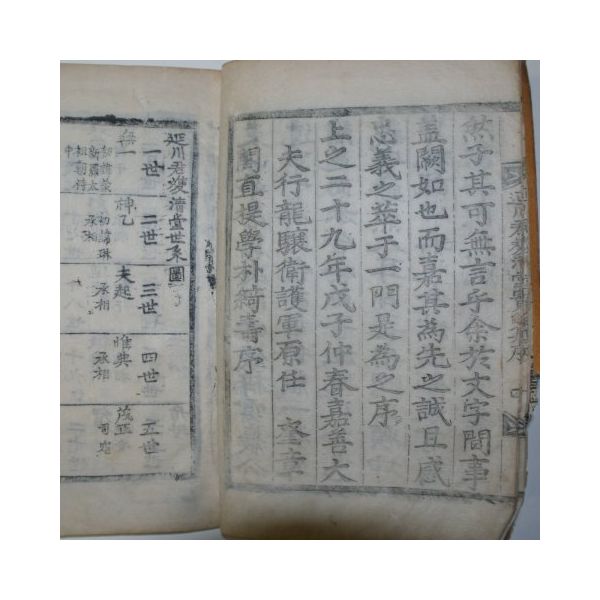 然子其可無言乎余於文字間事
蓋闕如也而嘉其為先之誠且感
忠義之萃于一門是為之序
上之二十九年戊子仲春嘉善大
夫行龍驤衛護軍原任 奎章
閣直提學朴綺壽序
世系圖
一世
二世
三世
四世
五世
無一
初諱
新羅太
乙
初諱琳
丞相
夫起
丞相
惟典
丞相
茂正
司宛